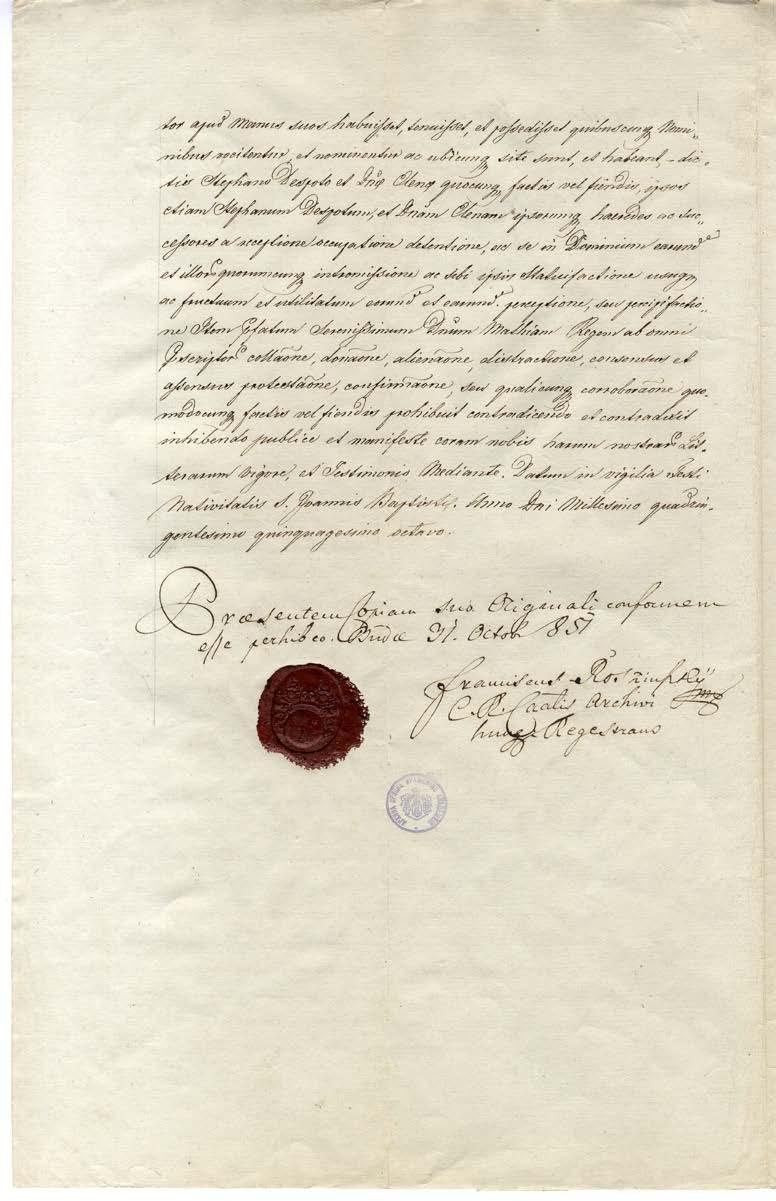 tor apud Manus suos habuisset, tenuisset, et possedisset quibuscunq Nomi„
nibus vocitentur, et nominentur ac ubicunq site sunt, et habeant – dic„
tis Stephano Despoto et Dnę Elenę quocunq factas vel fiendis, ipsos
etiam Stephanum Despotum, et Dnam Elenam ipsorumq haeredes ac suc„
cessores a receptione occupatione detentione, ac se in Dominium earund
et illor quorumcunq intromissione ac sibi ipsis Statuifactione usuq
ac fructuum et utilitatum eorund et earund. perceptione, seu percipifactio„
ne Item Pfatum Serenissimum Dnum Mathiam Regem ab omni
Pscriptor collaōne, donaōne, alienaōne, distractione, consensus et
assensus protestaōne, confirmaōne, seu qualicunq corroboraōne quo„
modocunq factis vel fiendis prohibuit contradicendo et contradixit
inhibendo publice et manifeste coram nobis harum nostrar Lit„
terarum vigore, et Testimonio Mediante. Datum in vigilia Festi
Nativitatis S. Joannis Baptistę. Anno Dni Millesimo quadrin„
gentesimo quinquagesimo octavo.
Præsentem Copiam suo Originali conformem
esse perhibeo. Budæ 31. Octob 851
Franciscus
C. R. Caalis Archivi
hung. Regestrans